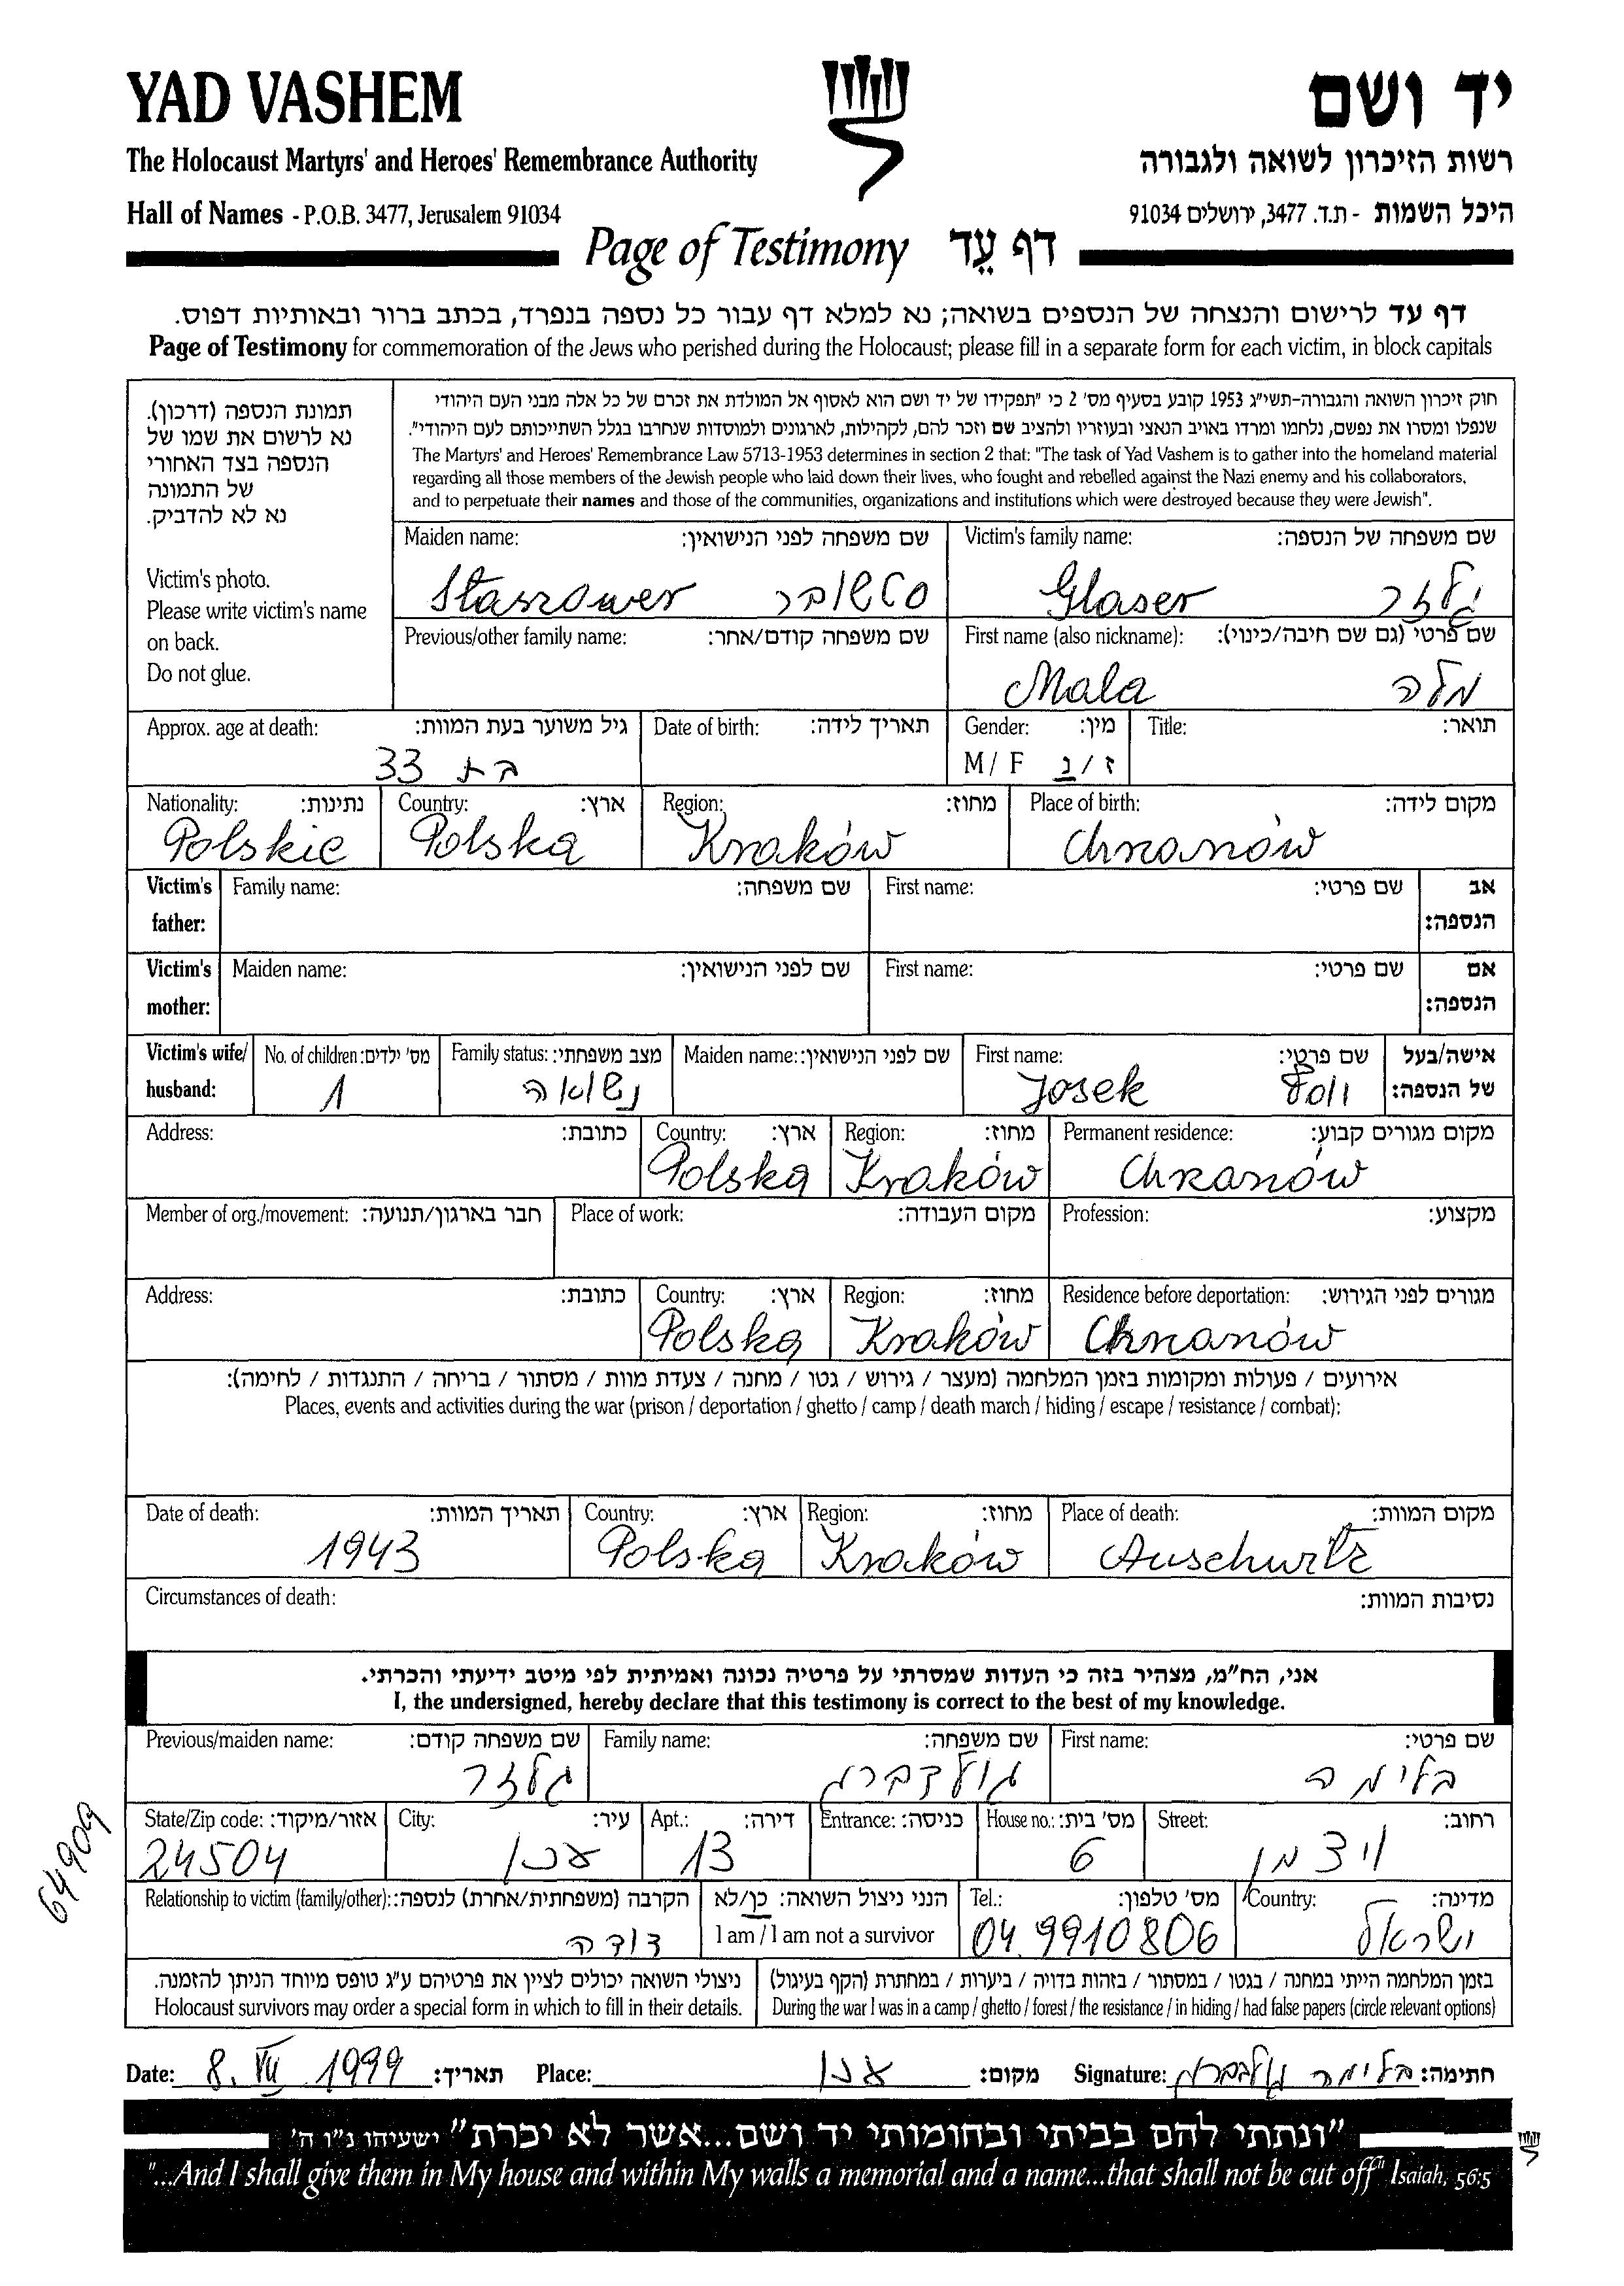 YAD VASHEM
יד ושם
The Holocaust Martyrs' and Heroes' Remembrance Authority
רשות הזיכרון לשואה ולגבורה
Hall of Names - P.O.B. 3477, Jerusalem 91034
היכל השמות - ת.ד. 3477, ירושלים 91034
Page of Testimony דף עֵד
דף עד לרישום והנצחה של הנספים בשואה; נא למלא דף עבור כל נספה בנפרד, בכתב ברור ובאותיות דפוס.
Page of Testimony for commemoration of the Jews who perished during the Holocaust; please fill in a separate form for each victim, in block capitals
תמונת הנספה (דרכון).
נא לרשום את שמו של
הנספה בצד האחורי
של התמונה
נא לא להדביק.
Victim's photo.
Please write victim's name
on back.
Do not glue.
חוק זיכרון השואה והגבורה-תשי"ג 1953 קובע בסעיף מס' 2 כי "תפקידו של יד ושם הוא לאסוף אל המולדת את זכרם של כל אלה מבני העם היהודי
שנפלו ומסרו את נפשם, נלחמו ומרדו באויב הנאצי ובעוזריו ולהציב שם וזכר להם, לקהילות, לארגונים ולמוסדות שנחרבו בגלל השתייכותם לעם היהודי".
The Martyrs' and Heroes' Remembrance Law 5713-1953 determines in section 2 that: "The task of Yad Vashem is to gather into the homeland material
regarding all those members of the Jewish people who laid down their lives, who fought and rebelled against the Nazi enemy and his collaborators,
and to perpetuate their names and those of the communities, organizations and institutions which were destroyed because they were Jewish".
Maiden name: שם משפחה לפני הנישואין:
Victim's family name: שם משפחה של הנספה:
סטשובר
Glaser גלזר
Previous/other family name: שם משפחה קודם/אחר:
First name (also nickname): שם פרטי (גם שם חיבה/כינוי):
Mala מלה
Approx. age at death: גיל משוער בעת המוות:
Date of birth: תאריך לידה:
Gender: מין:
Title: תואר:
33 בת
M/ F ז/נ
Nationality: נתינות:
Country: ארץ:
Region: מחוז:
Place of birth: מקום לידה:
Polskie Polska Kraków Chrzanów
Victim's father: Family name: שם משפחה: First name: שם פרטי: אב הנספה:
Victim's mother: Maiden name: שם לפני הנישואין: First name: שם פרטי: אם הנספה:
Victim's wife/ husband: No. of children: מס' ילדים: Family status: מצב משפחתי: Maiden name: שם לפני הנישואין: First name: שם פרטי: אישה/בעל של הנספה:
1 נשואה Josek יוסק
Address: כתובת: Country: ארץ: Region: מחוז: Permanent residence: מקום מגורים קבוע:
Polska Kraków Chrzanów
Member of org./movement: חבר בארגון/תנועה: Place of work: מקום העבודה: Profession: מקצוע:
Address: כתובת: Country: ארץ: Region: מחוז: Residence before deportation: מגורים לפני הגירוש:
Polska Kraków Chrzanów
אירועים / פעולות ומקומות בזמן המלחמה (מעצר / גירוש / גטו / מחנה / צעדת מוות / מסתור / בריחה / התנגדות / לחימה):
Places, events and activities during the war (prison / deportation / ghetto / camp / death march / hiding / escape / resistance / combat):
Date of death: תאריך המוות: Country: ארץ: Region: מחוז: Place of death: מקום המוות:
1943 Polska Kraków Auschwitz
Circumstances of death: נסיבות המוות:
אני, הח"מ, מצהיר בזה כי העדות שמסרתי על פרטיה נכונה ואמיתית לפי מיטב ידיעתי והכרתי.
I, the undersigned, hereby declare that this testimony is correct to the best of my knowledge.
Previous/maiden name: שם משפחה קודם: Family name: שם משפחה: First name: שם פרטי:
גלזר גולדברג בלימה
State/Zip code: אזור/מיקוד: City: עיר: Apt.: דירה: Entrance: כניסה: House no.: מס' בית: Street: רחוב:
24504 עכו 13 6 ויצמן
Relationship to victim (family/other): הקרבה (משפחתית/אחרת) לנספה: הנני ניצול השואה: כן/לא Tel.: מס' טלפון: Country: מדינה:
דודה I am / I am not a survivor 04.9910806 ישראל
ניצולי השואה יכולים לציין את פרטיהם ע"ג טופס מיוחד הניתן להזמנה.
Holocaust survivors may order a special form in which to fill in their details.
בזמן המלחמה הייתי במחנה / בגטו / במסתור / בזהות בדויה / ביערות / במחתרת (הקף בעיגול)
During the war I was in a camp / ghetto / forest / the resistance / in hiding / had false papers (circle relevant options)
Date: 8. VII 1999 תאריך: Place: עכו מקום: Signature: בלימה גולדברג חתימה:
"ונתתי להם בביתי ובחומותי יד ושם...אשר לא יכרת" ישעיהו נ"ו ה'
"...And I shall give them in My house and within My walls a memorial and a name...that shall not be cut off" Isaiah, 56:5
64909